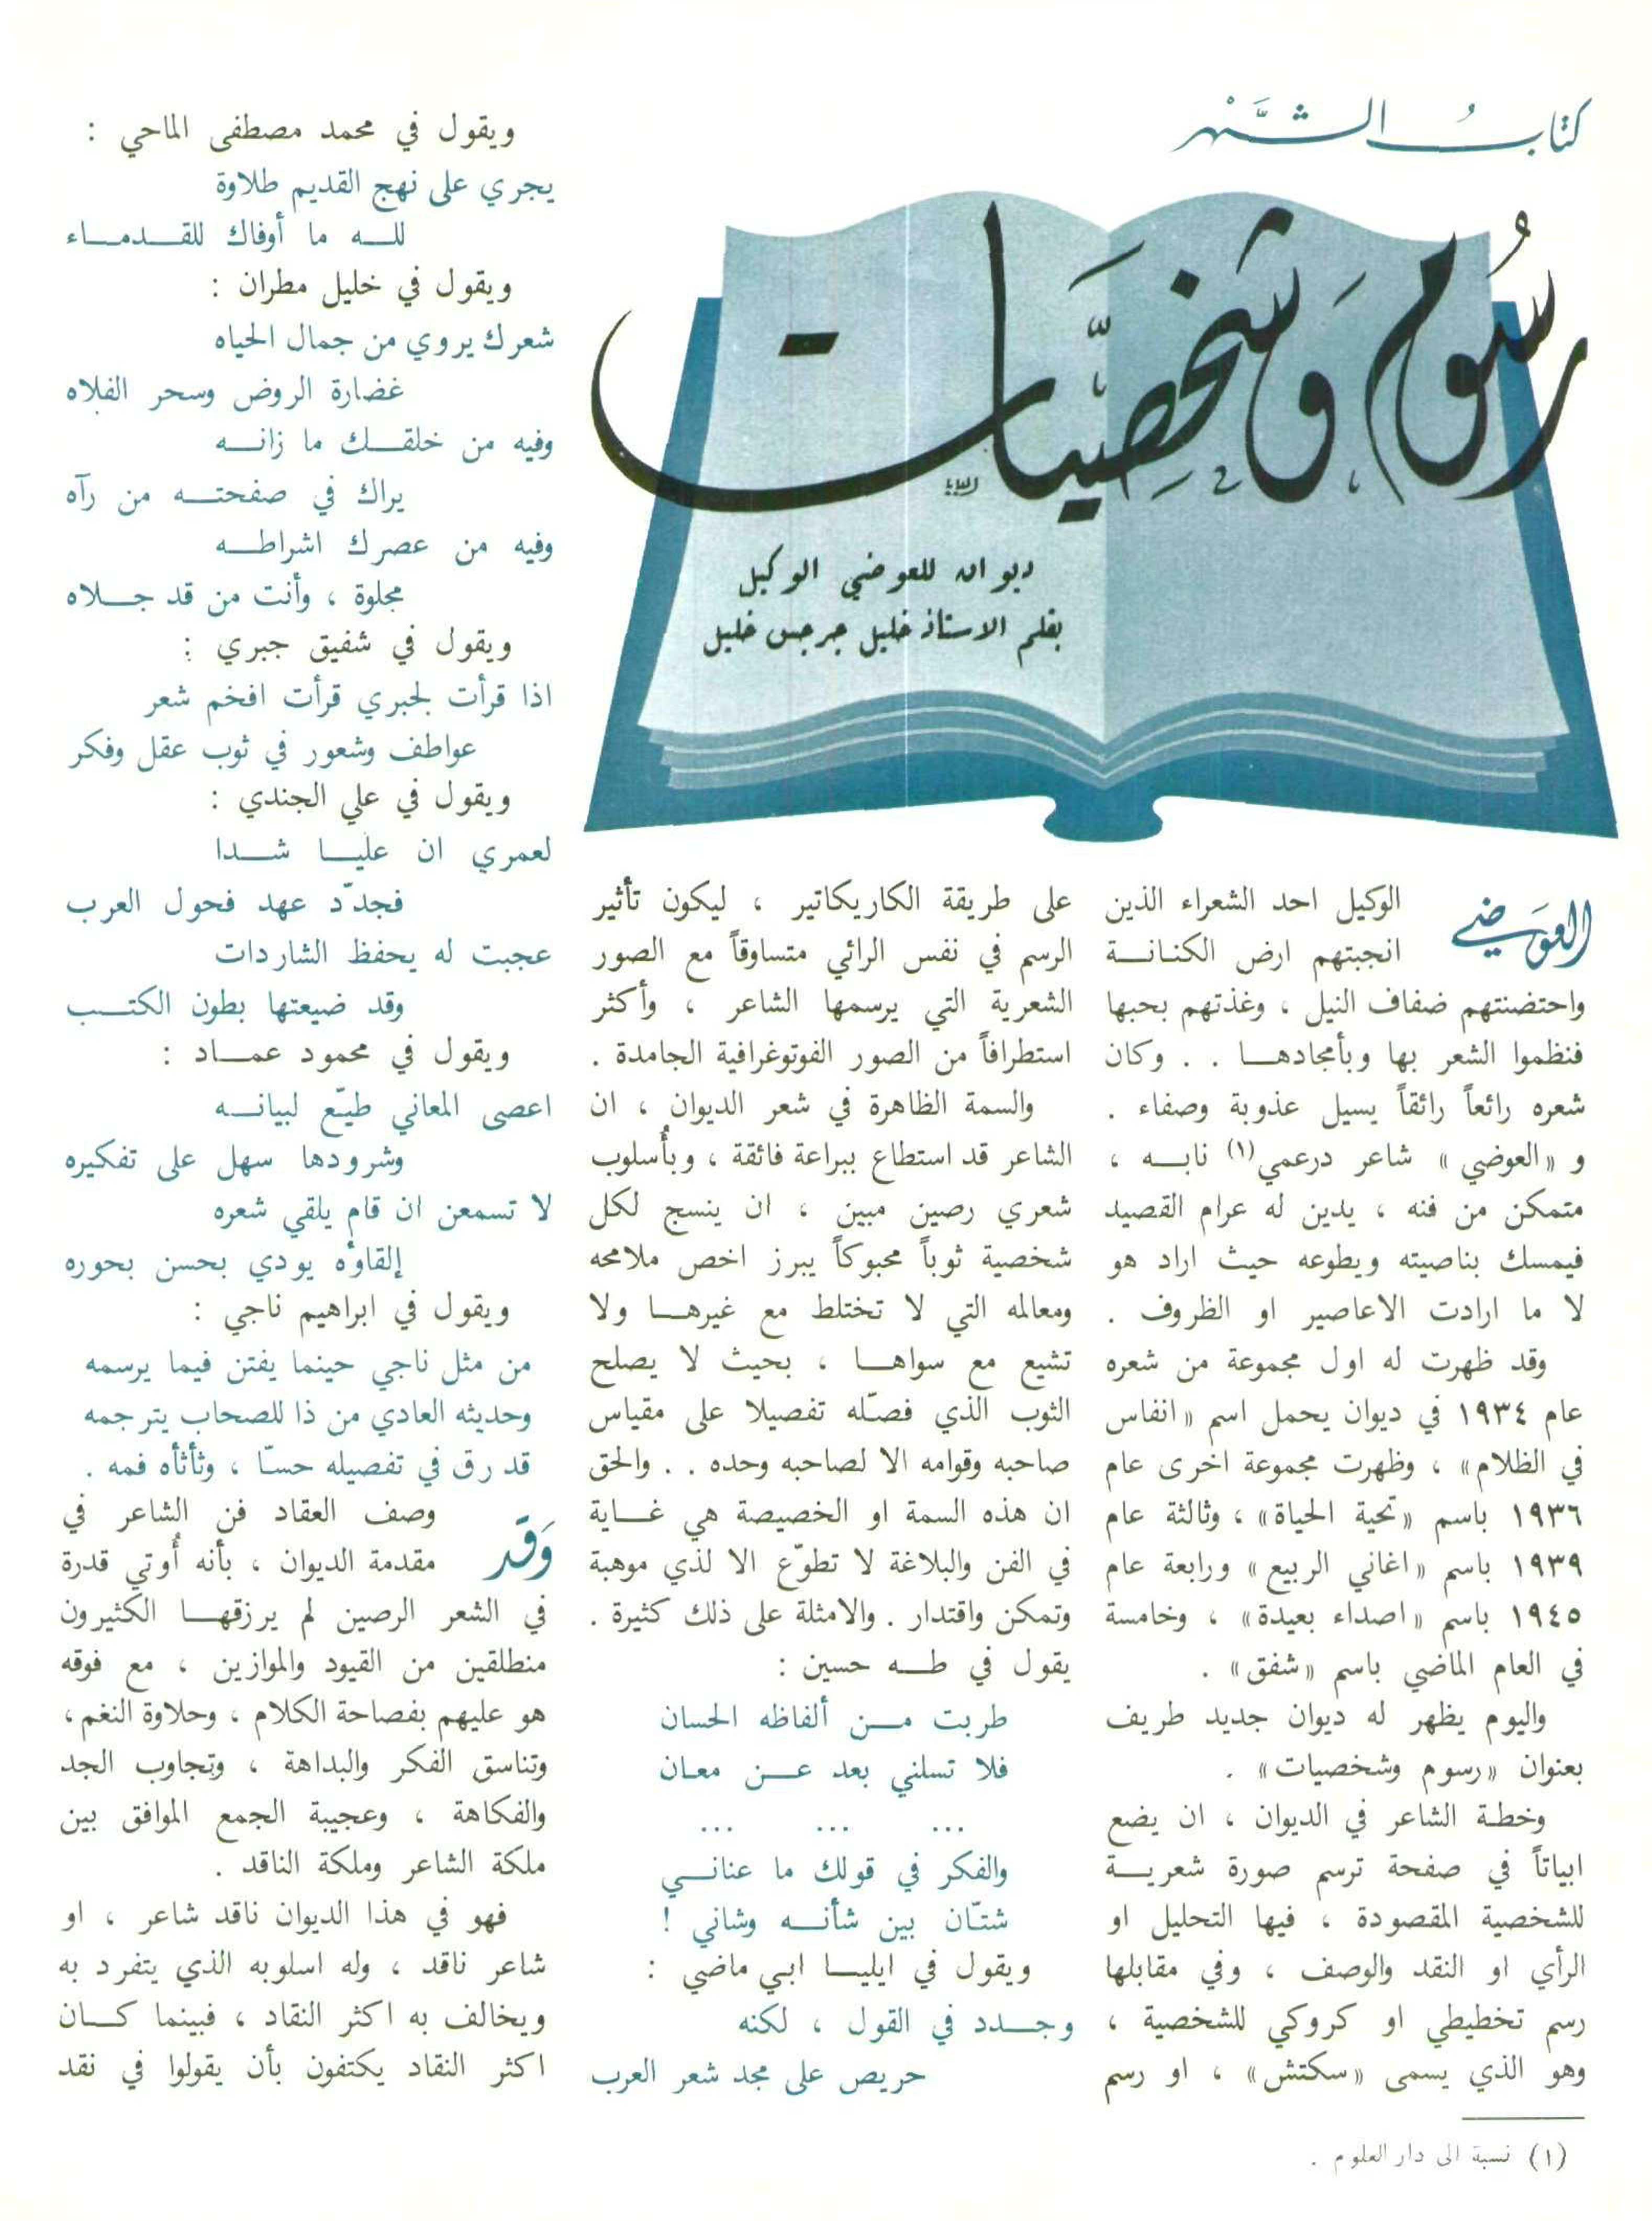 كتاب الشَّهْر
رسُوم وَشخصِيَّات
ديوان للعوضي الوكيل
بقلم الاستاذ خليل جرجس خليل
العوَضي الوكيل احد الشعراء الذين
انجبتهم ارض الكنانة
واحتضنتهم ضفاف النيل ، وغذتهم بحبها
فنظموا الشعر بها وبأمجادها . . وكان
شعره رائعاً رائقاً يسيل عذوبة وصفاء .
و «العوضي» شاعر درعمي(١) نابه ،
متمكن من فنه ، يدين له عرام القصيد
فيمسك بناصيته ويطوعه حيث اراد هو
لا ما ارادت الاعاصير او الظروف .
وقد ظهرت له اول مجموعة من شعره
عام ١٩٣٤ في ديوان يحمل اسم «انفاس
في الظلام» ، وظهرت مجموعة اخرى عام
١٩٣٦ باسم «تحية الحياة» ، وثالثة عام
١٩٣٩ باسم «اغاني الربيع» ورابعة عام
١٩٤٥ باسم «اصداء بعيدة» ، وخامسة
في العام الماضي باسم «شفق» .
واليوم يظهر له ديوان جديد طريف
بعنوان «رسوم وشخصيات» .
وخطة الشاعر في الديوان ، ان يضع
ابياتاً في صفحة ترسم صورة شعرية
للشخصية المقصودة ، فيها التحليل او
الرأي او النقد والوصف ، وفي مقابلها
رسم تخطيطي او كروكي للشخصية ،
وهو الذي يسمى «سكتش» ، او رسم
(١) نسبة الى دار العلوم .
على طريقة الكاريكاتير ، ليكون تأثير
الرسم في نفس الرائي متساوقاً مع الصور
الشعرية التي يرسمها الشاعر ، وأكثر
استطرافاً من الصور الفوتوغرافية الجامدة .
والسمة الظاهرة في شعر الديوان ، ان
الشاعر قد استطاع ببراعة فائقة ، وبأسلوب
شعري رصين مبين ، ان ينسج لكل
شخصية ثوباً محبوكاً يبرز اخص ملامحه
ومعالمه التي لا تختلط مع غيرها ولا
تشيع مع سواها ، بحيث لا يصلح
الثوب الذي فصّله تفصيلا على مقياس
صاحبه وقوامه الا لصاحبه وحده . . والحق
ان هذه السمة او الخصيصة هي غاية
في الفن والبلاغة لا تطوّع الا لذي موهبة
وتمكن واقتدار . والامثلة على ذلك كثيرة .
يقول في طه حسين :
طربت من ألفاظه الحسان
فلا تسلني بعد عن معان
... ... ...
والفكر في قولك ما عناني
شتّان بين شأنه وشاني !
ويقول في ايليا ابي ماضي :
وجدد في القول ، لكنه
حريص على مجد شعر العرب
ويقول في محمد مصطفى الماحي :
يجري على نهج القديم طلاوة
لله ما أوفاك للقدماء
ويقول في خليل مطران :
شعرك يروي من جمال الحياه
غضارة الروض وسحر الفلاه
وفيه من خلقك ما زانه
يراك في صفحته من رآه
وفيه من عصرك اشراطه
مجلوة ، وأنت من قد جلاه
ويقول في شفيق جبري :
اذا قرأت لجبري قرأت افخم شعر
عواطف وشعور في ثوب عقل وفكر
ويقول في علي الجندي :
لعمري ان عليا شدا
فجدّد عهد فحول العرب
عجبت له يحفظ الشاردات
وقد ضيعتها بطون الكتب
ويقول في محمود عماد :
اعصى المعاني طيّع لبيانه
وشرودها سهل على تفكيره
لا تسمعن ان قام يلقي شعره
إلقاؤه يودي بحسن بحوره
ويقول في ابراهيم ناجي :
من مثل ناجي حينما يفتن فيما يرسمه
وحديثه العادي من ذا للصحاب يترجمه
قد رق في تفصيله حسّا ، وثأثأه فمه .
وَقد وصف العقاد فن الشاعر في
مقدمة الديوان ، بأنه أُوتي قدرة
في الشعر الرصين لم يرزقها الكثيرون
منطلقين من القيود والموازين ، مع فوقه
هو عليهم بفصاحة الكلام ، وحلاوة النغم ،
وتناسق الفكر والبداهة ، وتجاوب الجد
والفكاهة ، وعجيبة الجمع الموافق بين
ملكة الشاعر وملكة الناقد .
فهو في هذا الديوان ناقد شاعر ، او
شاعر ناقد ، وله اسلوبه الذي يتفرد به
ويخالف به اكثر النقاد ، فبينما كان
اكثر النقاد يكتفون بأن يقولوا في نقد